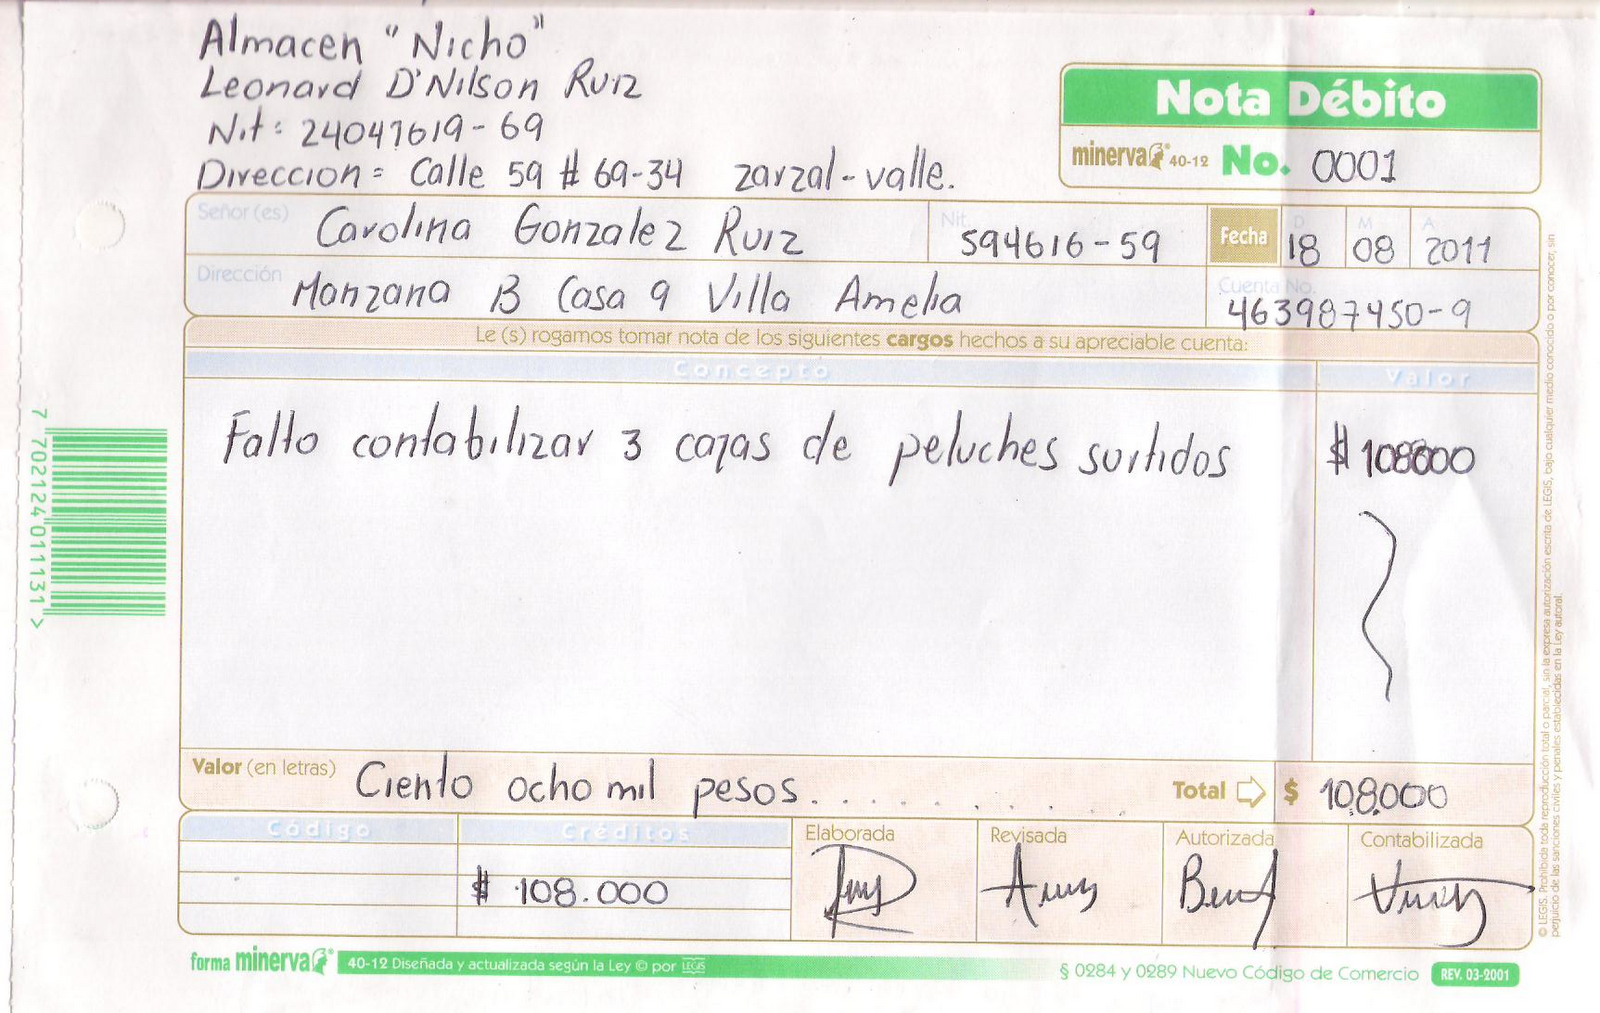 Almacen "Nicho"
Leonard D'Nilson Ruiz
Nit: 24047619-69
Direccion = Calle 59 # 69-34 zarzal-valle.
Nota Débito
minerva 40-12 No. 0001
Señor(es) Carolina Gonzalez Ruiz Nit. 594616-59 Fecha D 18 M 08 A 2011
Dirección Manzana B Casa 9 Villa Amelia Cuenta No. 463987450-9
Le (s) rogamos tomar nota de los siguientes cargos hechos a su apreciable cuenta:
Concepto Valor
Falto contabilizar 3 cajas de peluches surtidos $ 108000
Valor (en letras) Ciento ocho mil pesos. . . . . . . . . Total $ 108.000
Código Créditos Elaborada Revisada Autorizada Contabilizada
$ 108.000
forma minerva 40-12 Diseñada y actualizada según la Ley © por LEGIS
§ 0284 y 0289 Nuevo Código de Comercio REV. 03-2001
7 702124 011131 >
© LEGIS. Prohibida toda reproducción total o parcial, sin la expresa autorización escrita de LEGIS, bajo cualquier medio conocido o por conocer, sin
perjuicio de las sanciones civiles y penales establecidas en la Ley autoral.